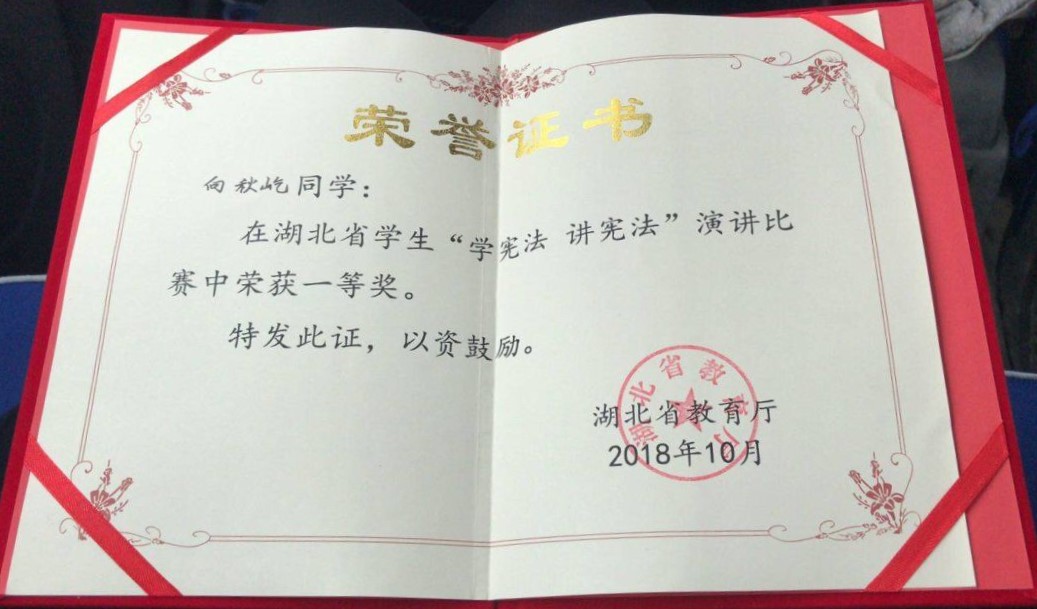 荣誉证书
向秋屹同学：
在湖北省学生“学宪法 讲宪法”演讲比
赛中荣获一等奖。
特发此证，以资鼓励。
湖北省教育厅
湖北省教育厅
2018年10月